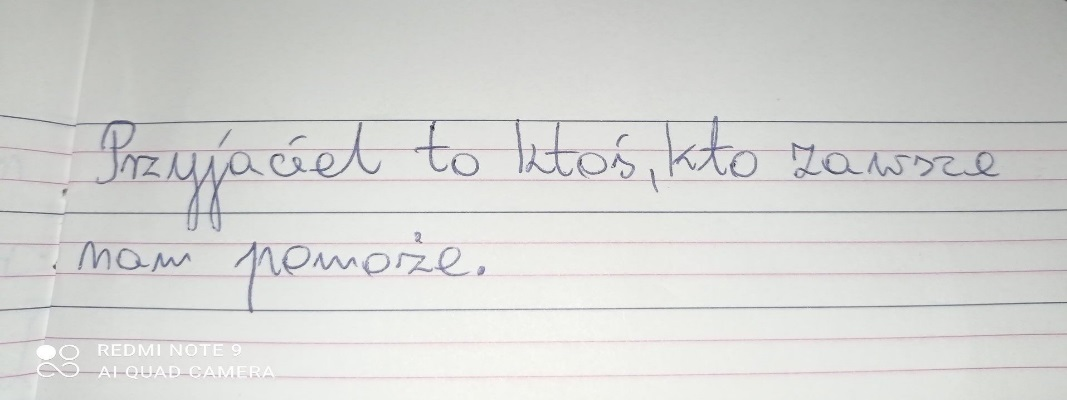 Przyjaciel to ktoś, kto zawsze
nam pomoże.
REDMI NOTE 9
AI QUAD CAMERA